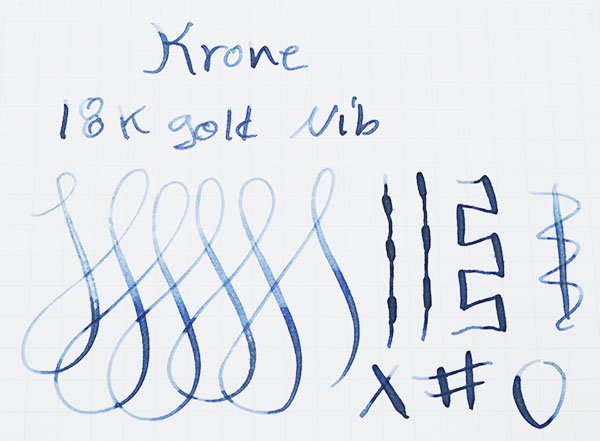 Krone
18K gold Nib
X # O